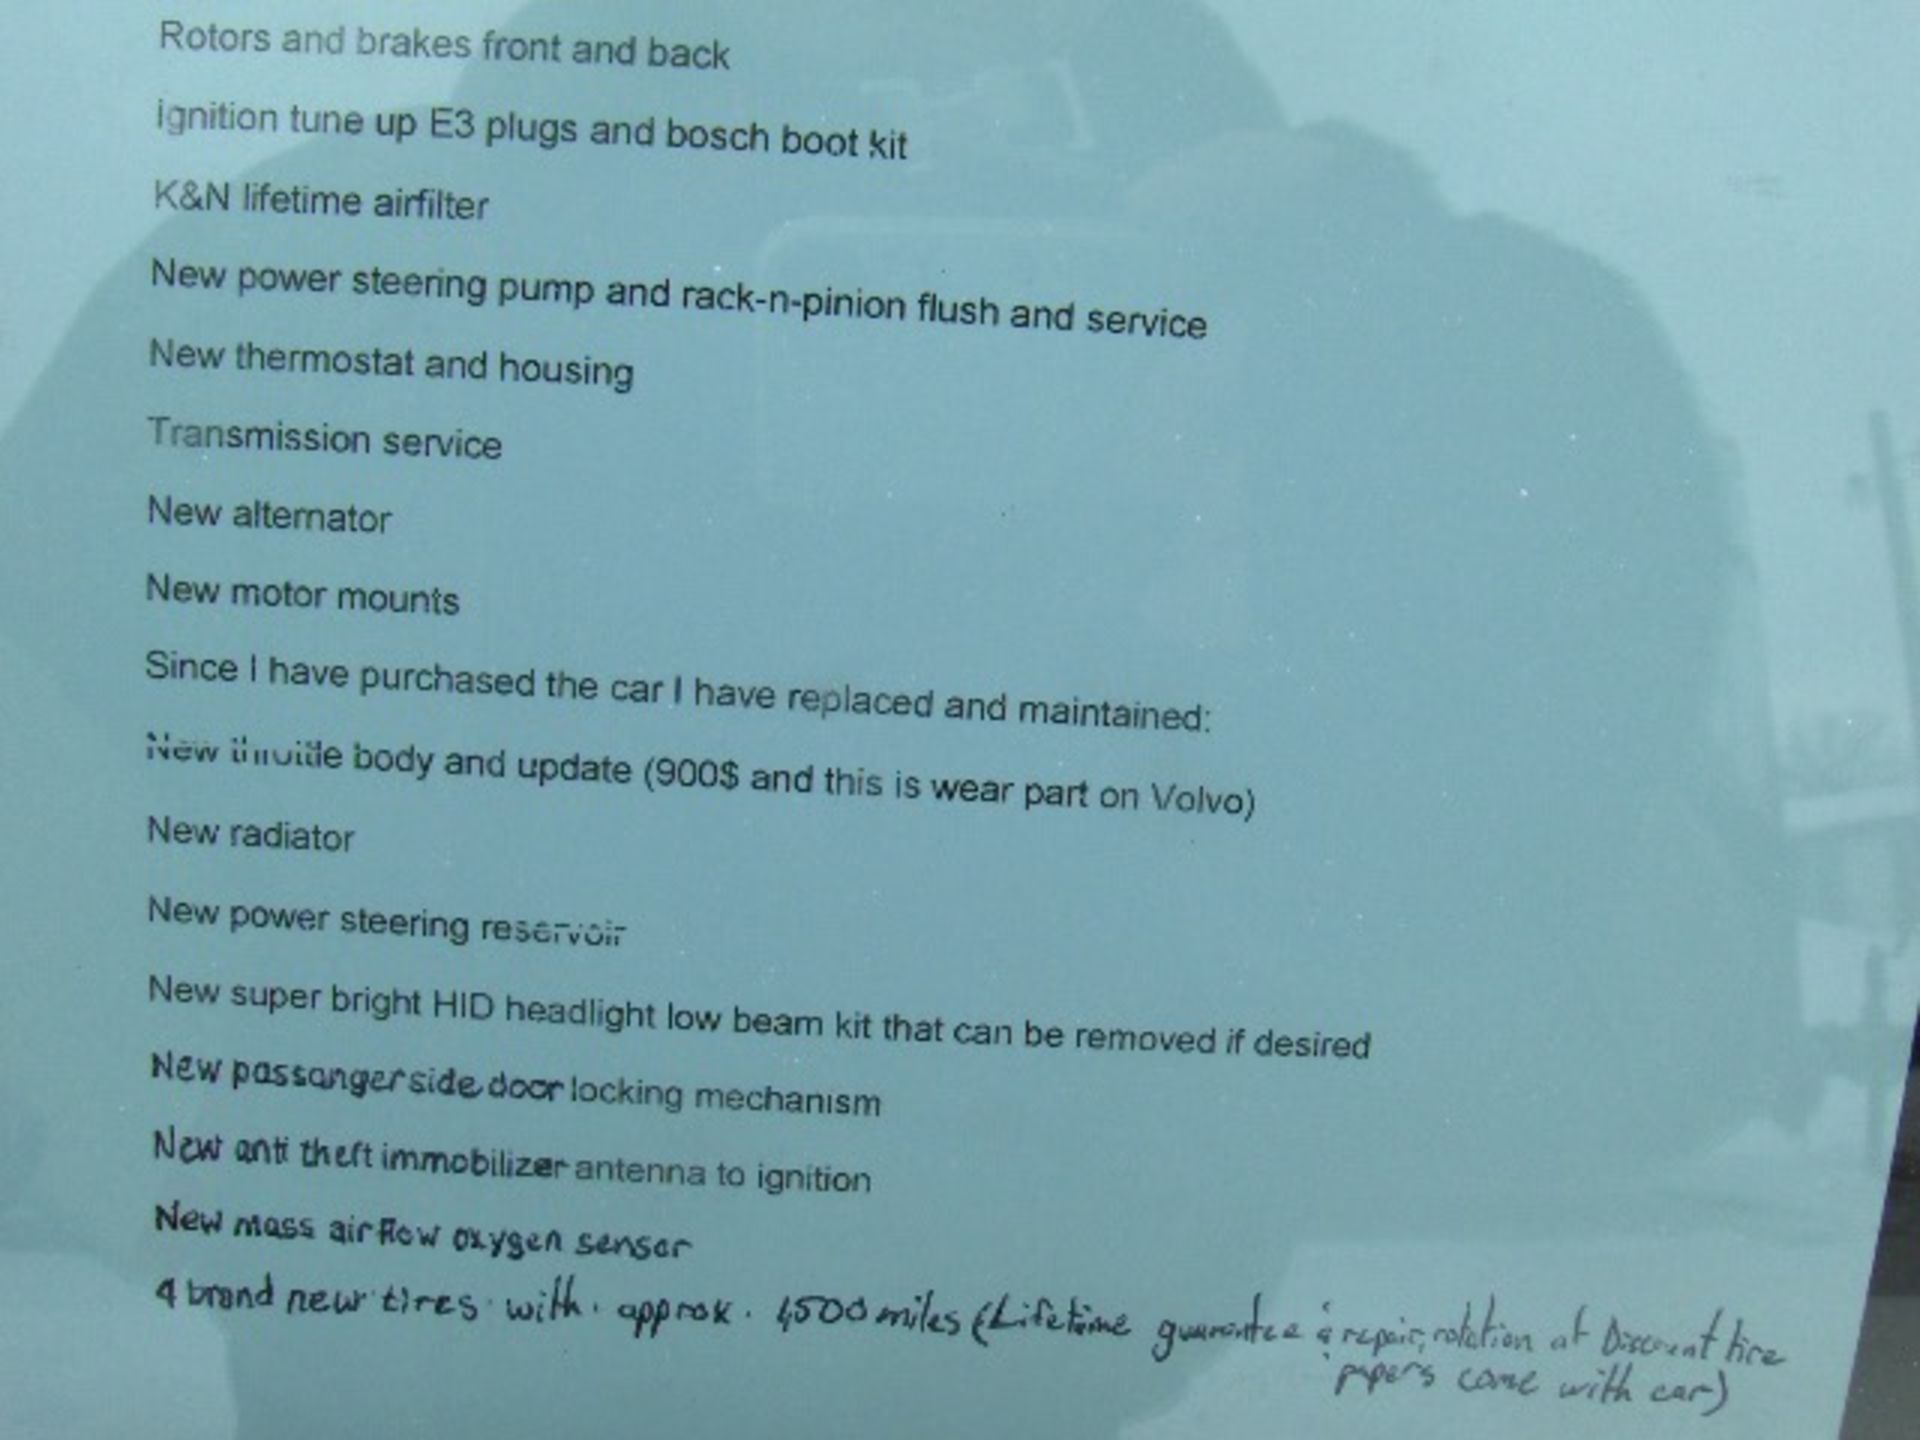 Rotors and brakes front and back
Ignition tune up E3 plugs and bosch boot kit
K&N lifetime airfilter
New power steering pump and rack-n-pinion flush and service
New thermostat and housing
Transmission service
New alternator
New motor mounts
Since I have purchased the car I have replaced and maintained:
New throttle body and update (900$ and this is wear part on Volvo)
New radiator
New power steering reservoir
New super bright HID headlight low beam kit that can be removed if desired
New passanger side door locking mechanism
New anti theft immobilizer antenna to ignition
New mass air flow oxygen sensor
4 brand new tires with approx. 1,500 miles (Lifetime guarantee & repair, rotation at Discount tire
papers come with car)